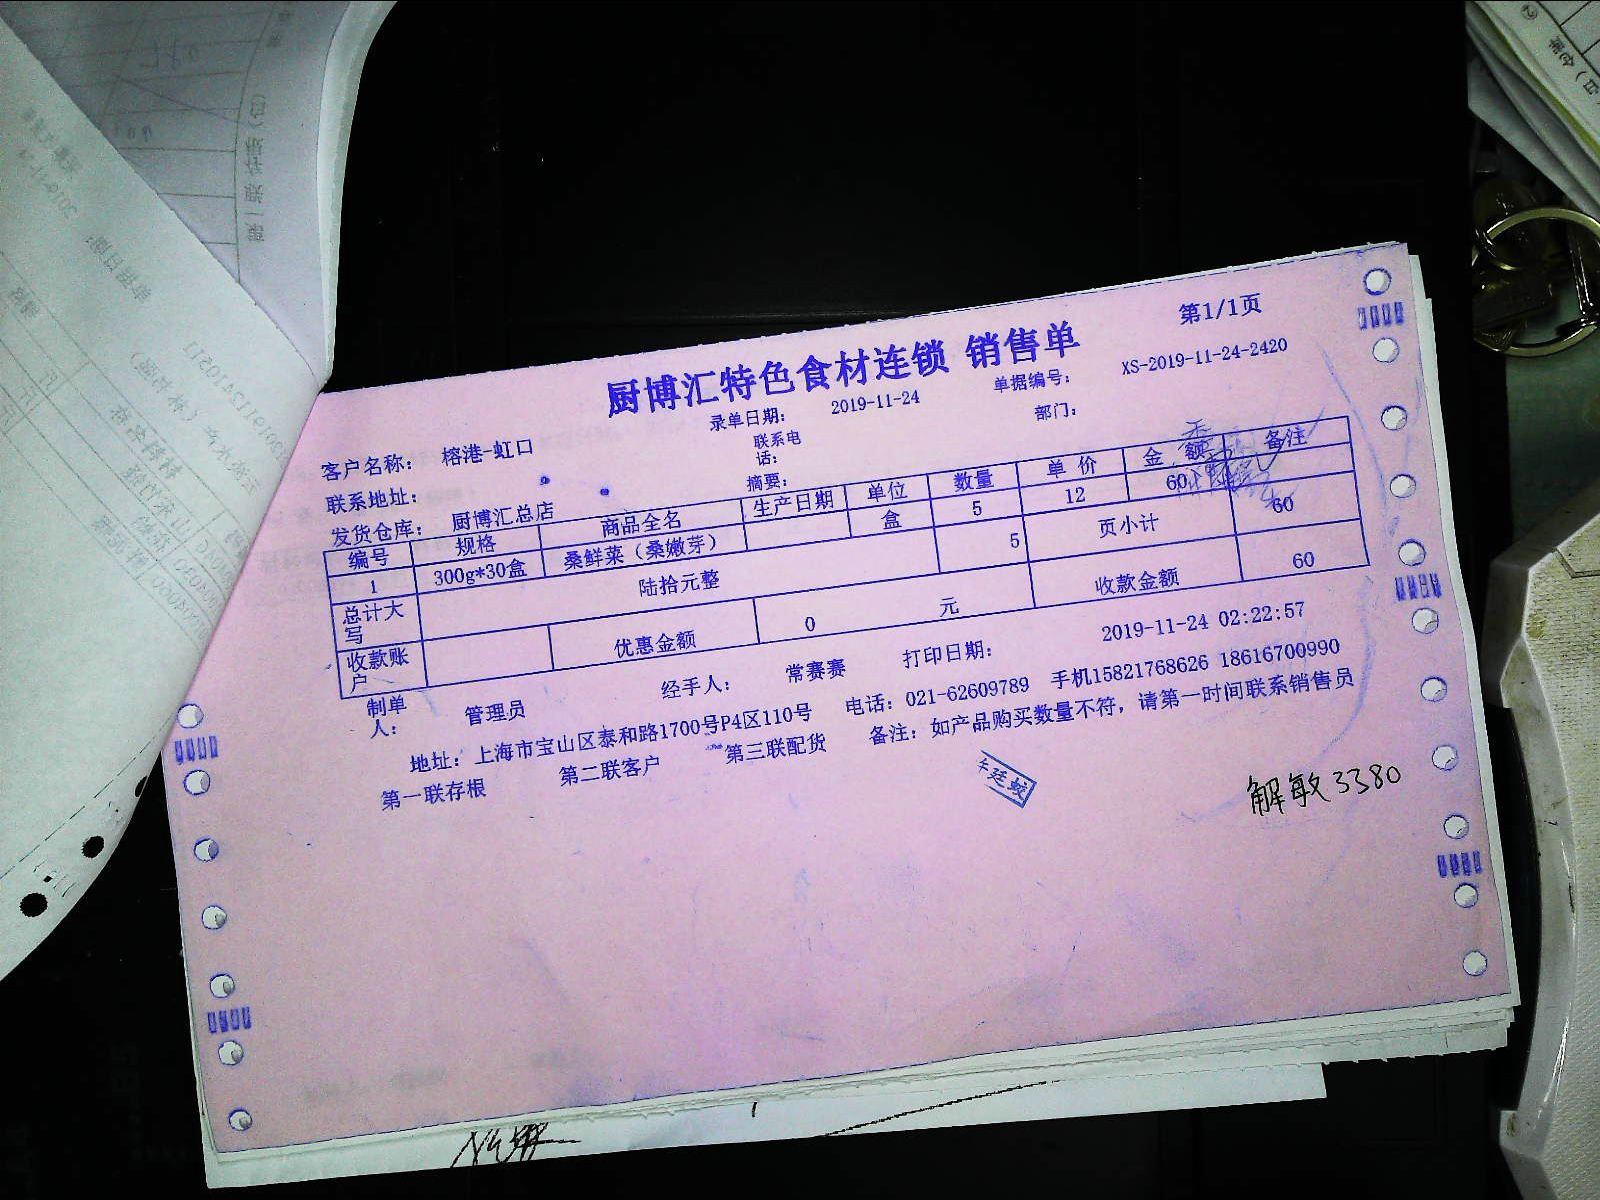 第1/1页
厨博汇特色食材连锁 销售单
录单日期： 2019-11-24 单据编号： XS-2019-11-24-2420
客户名称： 榕港-虹口 联系电话： 部门：
联系地址： 摘要：
发货仓库： 厨博汇总店
编号 规格 商品全名 生产日期 单位 数量 单价 金额 备注
1 300g*30盒 桑鲜菜（桑嫩芽） 盒 5 12 60
总计大写 陆拾元整 5 页小计 60
收款账户 优惠金额 0 元 收款金额 60
制单人： 管理员 经手人： 常赛赛 打印日期： 2019-11-24 02:22:57
地址：上海市宝山区泰和路1700号P4区110号 电话：021-62609789 手机15821768626 18616700990
第一联存根 第二联客户 第三联配货 备注：如产品购买数量不符，请第一时间联系销售员
解敏3380